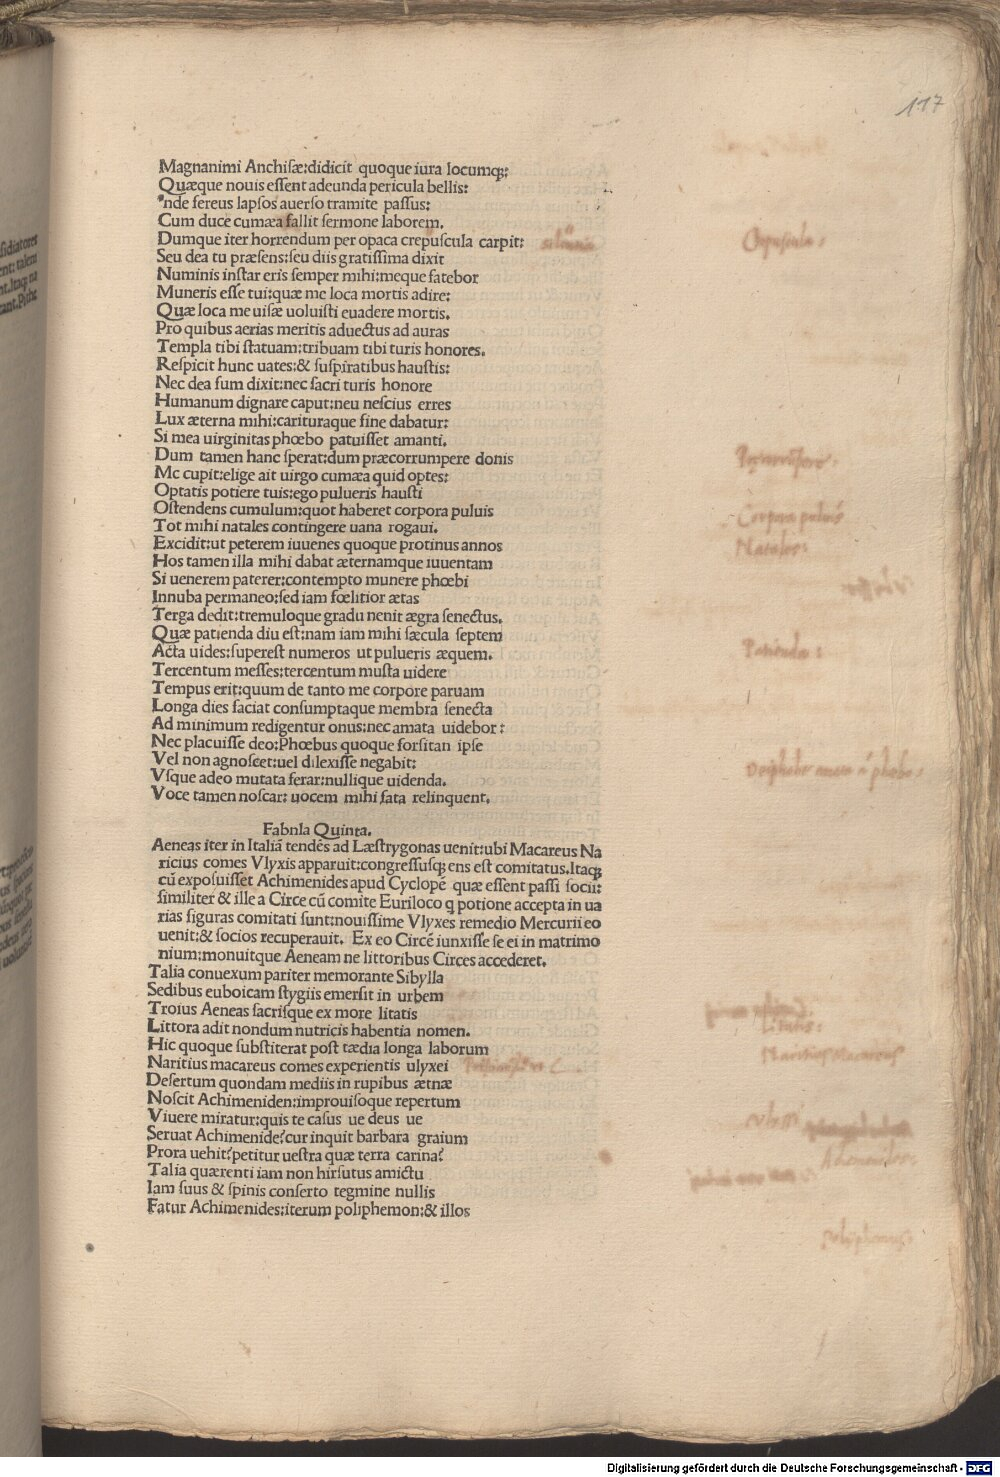 117
Magnanimi Anchisæ:didicit quoque iura locumq;:
Quæque nouis essent adeunda pericula bellis:
nde fereus lapsos auerso tramite passus:
Cum duce cumæa fallit sermone laborem.
Dumque iter horrendum per opaca crepuscula carpit:
Crepuscula:
Seu dea tu præsens:seu diis gratissima dixit
Numinis instar eris semper mihi:meque fatebor
Muneris esse tui:quæ me loca mortis adire:
Quæ loca me uisæ uoluisti euadere mortis.
Pro quibus aerias meritis aduectus ad auras
Templa tibi statuam:tribuam tibi turis honores.
Respicit hunc uates:& suspiratibus haustis:
Nec dea sum dixit:nec sacri turis honore
Humanum dignare caput:neu nescius erres
Lux æterna mihi:carituraque fine dabatur:
Si mea uirginitas phœbo patuisset amanti.
Dum tamen hanc sperat:dum præcorrumpere donis
Mc cupit:elige ait uirgo cumæa quid optes:
Optatis potiere tuis:ego pulueris hausti
Ostendens cumulum:quot haberet corpora puluis
Corpora puluis
Tot mihi natales contingere uana rogaui.
Natales:
Excidit:ut peterem iuuenes quoque protinus annos
Hos tamen illa mihi dabat æternamque iuuentam
Si uenerem paterer:contempto munere phœbi
Innuba permaneo:sed iam fœlitior ætas
Terga dedit:tremuloque gradu nenit ægra senectus.
Quæ patienda diu est:nam iam mihi sæcula septem
Acta uides:superest numeros ut pulueris æquem.
Patienda:
Tercentum messes:tercentum musta uidere
Tempus erit:quum de tanto me corpore paruam
Longa dies faciat consumptaque membra senecta
Ad minimum redigentur onus:nec amata uidebor:
Nec placuisse deo:Phœbus quoque forsitan ipse
Vel non agnoscet:uel dilexisse negabit:
Vsque adeo mutata ferar:nullique uidenda.
Voce tamen noscar: uocem mihi fata relinquent.
Fabnla Quinta.
Aeneas iter in Italiã tendẽs ad Læstrygonas uenit:ubi Macareus Na
ricius comes Vlyxis apparuit:congressusq; ens est comitatus.Itaq;
cũ exposuisset Achimenides apud Cyclopẽ quæ essent passi socii:
similiter & ille a Circe cũ comite Euriloco q potione accepta in ua
rias figuras comitati sunt:nouissime Vlyxes remedio Mercurii eo
uenit:& socios recuperauit. Ex eo Circẽ iunxisse se ei in matrimo
nium:monuitque Aeneam ne littoribus Circes accederet.
Talia conuexum pariter memorante Sibylla
Sedibus euboicam stygiis emersit in urbem
Troius Aeneas sacrisque ex more litatis
Litatis:
Littora adit nondum nutricis habentia nomen.
Hic quoque substiterat post tædia longa laborum
Naritius Macareus
Naritius macareus comes experientis ulyxei
Desertum quondam mediis in rupibus ætnæ
Noscit Achimeniden:improuisoque repertum
Viuere miratur:quis te casus ue deus ue
Seruat Achimenide?cur inquit barbara graium
Prora uehit?petitur uestra quæ terra carina?
Talia quærenti iam non hirsutus amictu
Iam suus & spinis conserto tegmine nullis
Fatur Achimenides:iterum poliphemon:& illos
Digitalisierung gefördert durch die Deutsche Forschungsgemeinschaft - DFG